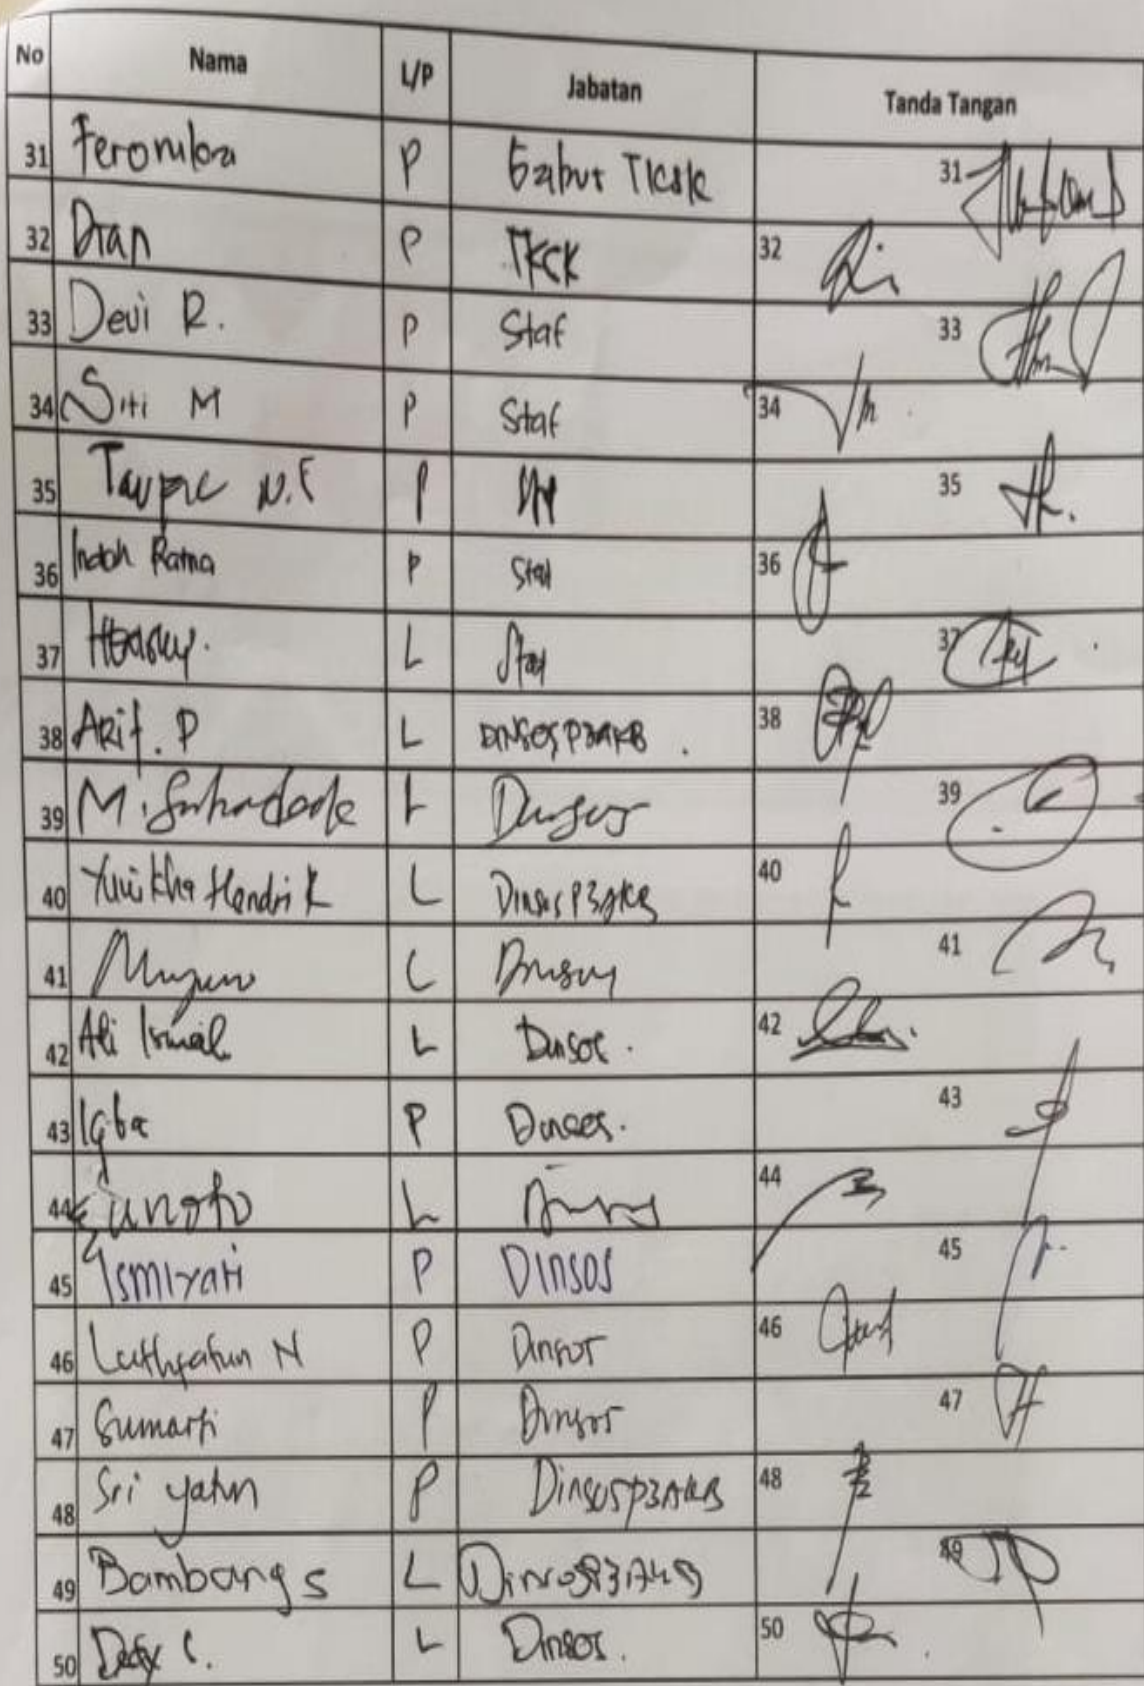 No Nama L/P Jabatan Tanda Tangan
31 P 31
32 Dian P TKSK 32
33 Devi R. P Staf 33
34 Siti M P Staf 34
35 P 35
36 Indah Ratna P Staf 36
37 L Staf 37
38 Arif. P L DINSOSP3AKB. 38
39 M. L Dinsos 39
40 Hendri K L DinsosP3AKB 40
41 L Dinsos 41
42 Ali Ismail L Dinsos. 42
43 P Dinsos. 43
44 Sunoto L Dinsos 44
45 Ismiyati P DINSOS 45
46 Luthfiatun N P Dinsos 46
47 Sumarti P Dinsos 47
48 Sri yatun P DinsosP3AKB 48
49 Bambang S L DinsosP3AKB 49
50 L Dinsos. 50